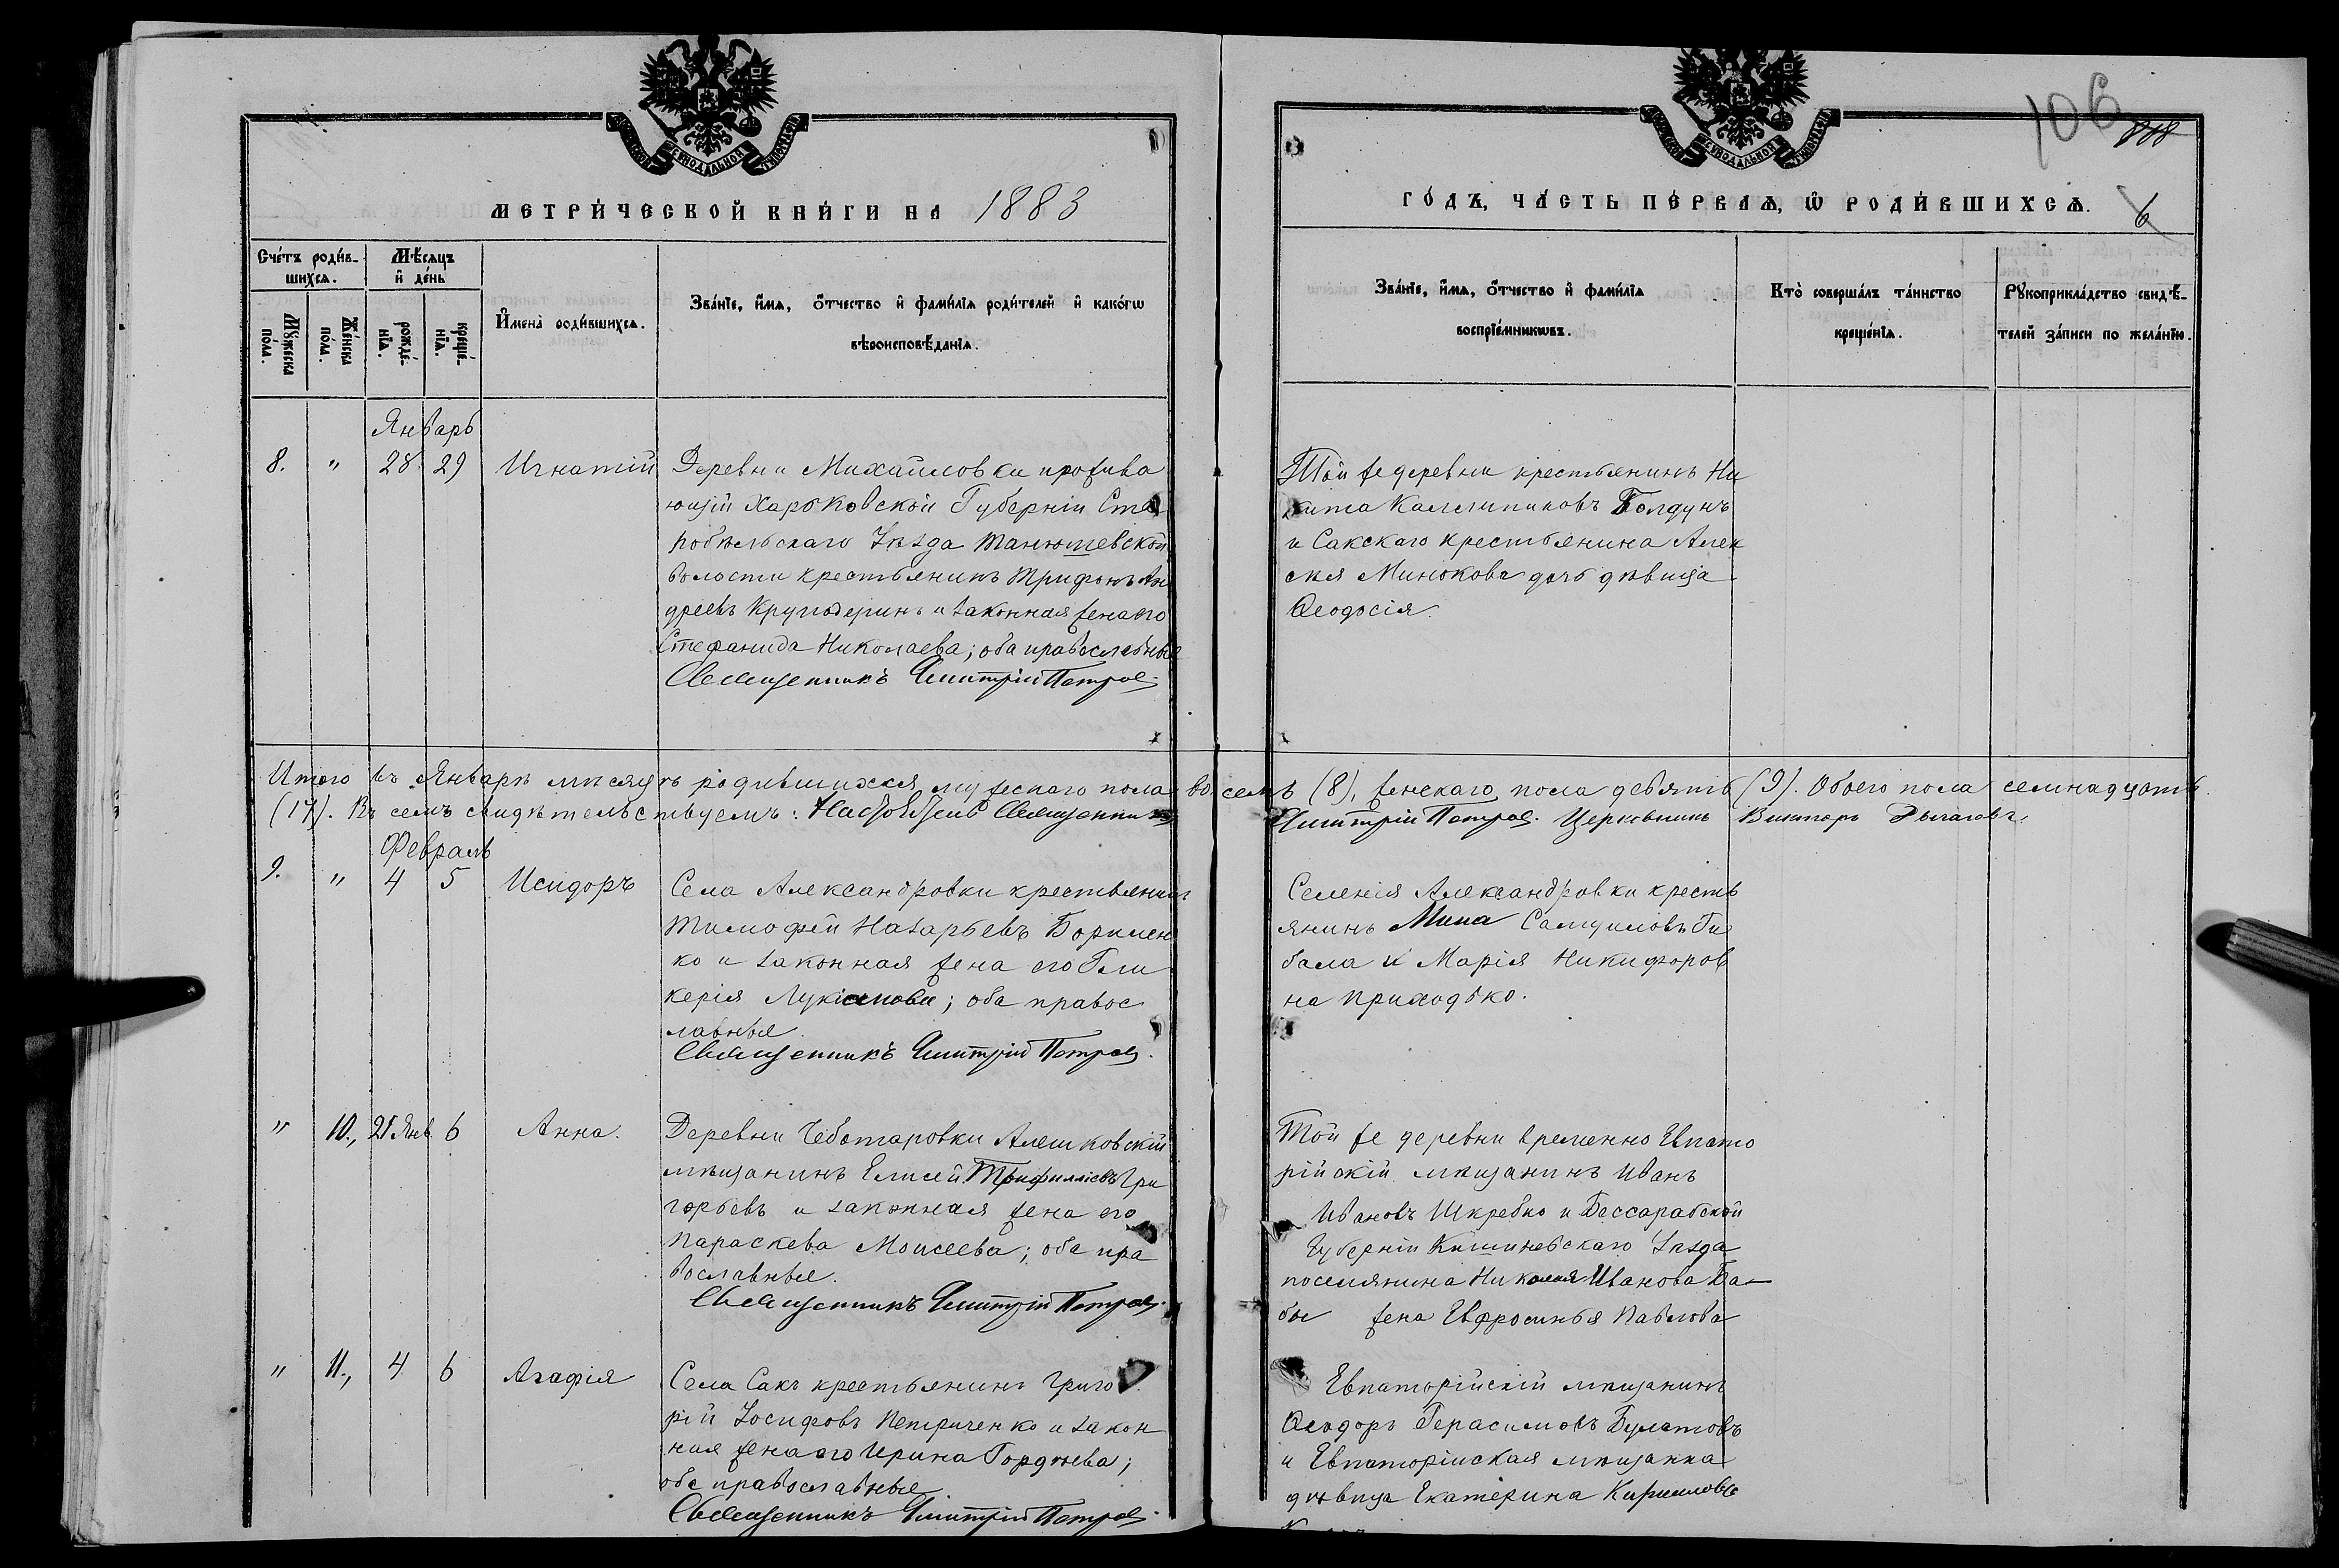 106
818
МЕТРИЧЕСКОЙ КНИГИ НА 1883
ГОДЪ, ЧАСТЬ ПЕРВАЯ, Ѡ РОДИВШИХСЯ.
6
Счетъ родив-
шихся.
Мѣсяцъ
и день
Мужеска
пола.
Женска
пола.
рожде-
нія.
креще-
нія.
Имена родившихся.
Званіе, имя, отчество и фамилія родителей и какогѡ
вѣроисповѣданія.
Званіе, имя, отчество и фамилія
воспріемниковъ.
Кто совершалъ таинство
крещенія.
Рукоприкладство свидѣ-
телей записи по желанію.
Январь
8. " 28 29 Игнатій
Деревни Михайловки прожива
ющій Харьковской Губерніи Ста
робѣльскаго Уѣзда Танюшевской
волости крестьянинъ Трифонъ Ан
дреевъ Круподеринъ и законная жена его
Стефанида Николаева; оба православные
Священникъ Димитрій Петровъ
Той же деревни крестьянинъ Ни
кита Каллиниковъ Болдунъ
и Сакскаго крестьянина Алек
сѣя Минокова дочь дѣвица
Ѳеодосія.
Итого въ Январѣ мѣсяцѣ родившихся мужескаго пола восемь (8), женскаго пола девять (9). Обоего пола семнадцать
(17). Въ семъ свидѣтельствуемъ: Настоятель Священникъ Димитрій Петровъ. Церковникъ Викторъ
Февраль
9. " 4 5 Исидоръ
Села Александровки крестьянинъ
Тимофей Назарьевъ Боримен
ко и законная жена его Гли
керія Лукіанова; оба правос
лавные.
Священникъ Димитрій Петровъ.
Селенія Александровки кресть
янинъ Мина Самуиловъ Ги
бала и Марія Никифоров
на Приходько.
" 10., 21 Янв. 6 Анна.
Деревни Чеботаровки Алешковскій
мѣщанинъ Елисей Трифилліевъ Гри
горьевъ и законная жена его
Параскева Моисеева; оба пра
вославные.
Священникъ Димитрій Петровъ.
Той же деревни временно Евпато
рійскій мѣщанинъ Иванъ
Ивановъ Шкребко и Бессарабской
Губерніи Кишиневскаго Уѣзда
поселянина Николая Иванова Ба-
бы жена Евфросинья Павлова
" 11., 4 6 Агафія
Села Сакъ крестьянинъ Григо
рій Іосифовъ Петриченко и закон
ная жена его Ирина Гордѣева;
оба православные
Священникъ Димитрій Петровъ.
Евпаторійскій мѣщанинъ
Ѳеодоръ Герасимовъ Булатовъ
и Евпаторійская мѣщанка
дѣвица Екатерина Кириллова